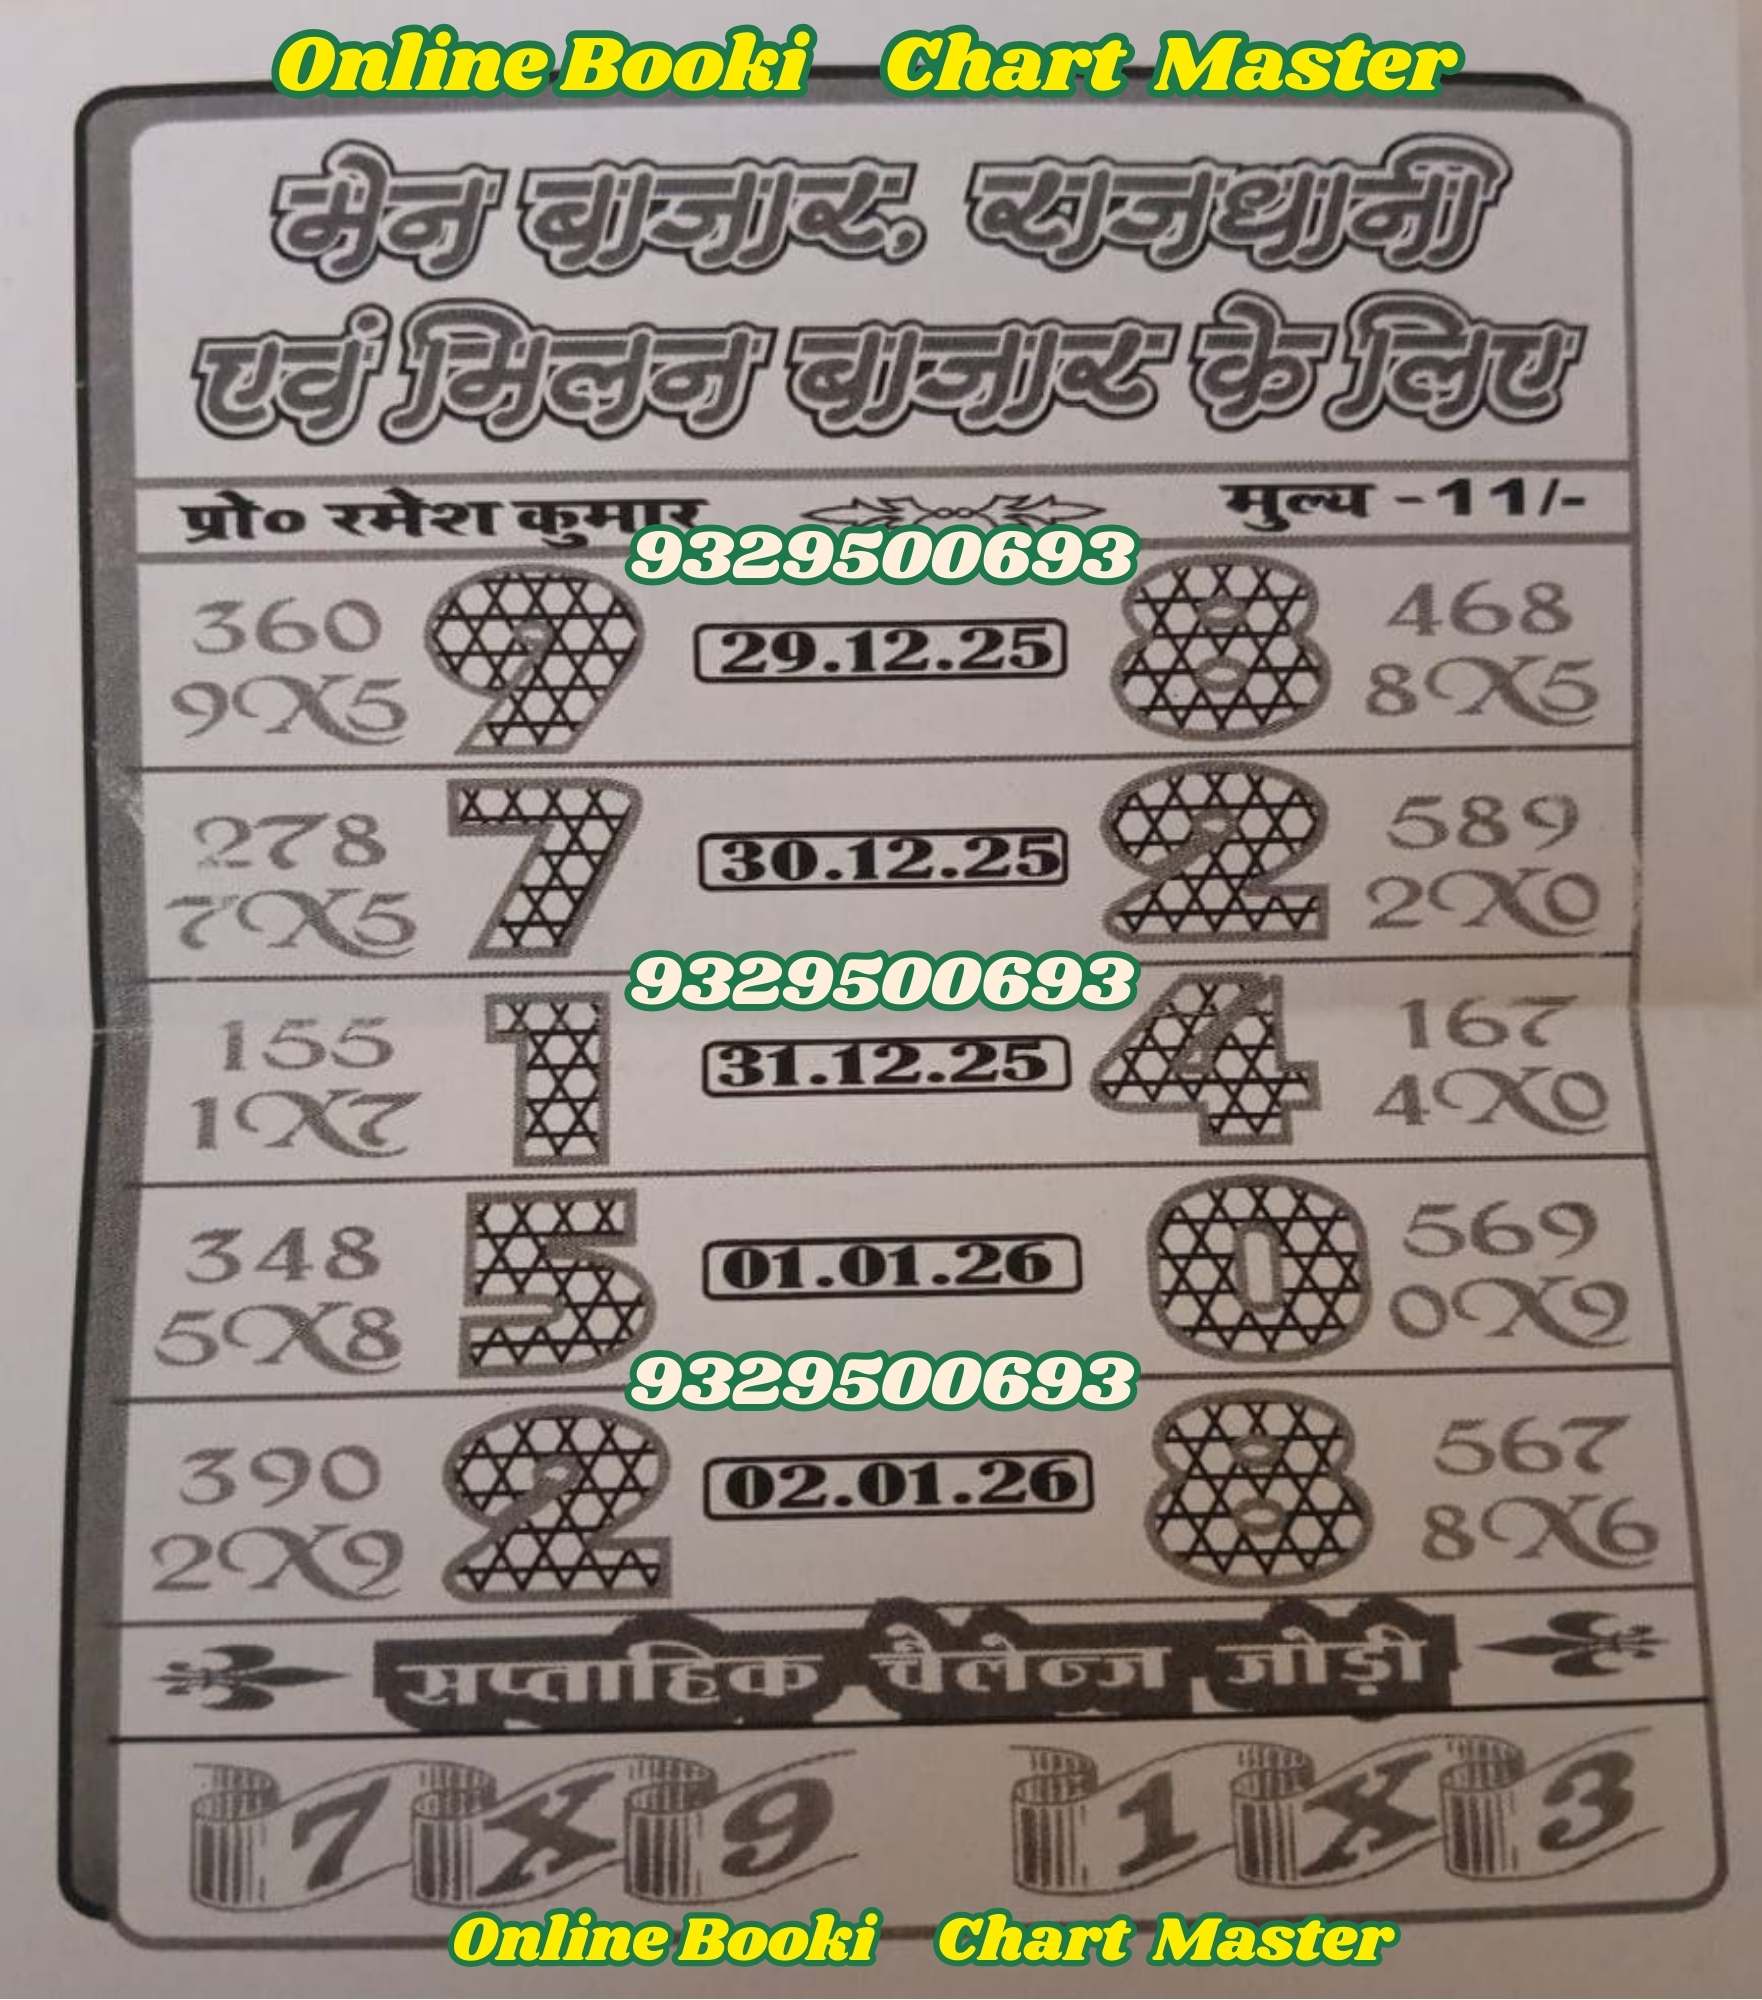 Online Booki Chart Master
मेन बाजार, राजधानी
एवं मिलन बाजार के लिए
प्रो० रमेश कुमार मुल्य -11/-
9329500693
360 9 29.12.25 8 468
9X5 8X5
278 7 30.12.25 2 589
7X5 2X0
9329500693
155 1 31.12.25 4 167
1X7 4X0
348 5 01.01.26 0 569
5X8 0X9
9329500693
390 2 02.01.26 8 567
2X9 8X6
सप्ताहिक चैलेन्ज जोड़ी
7X9 1X3
Online Booki Chart Master